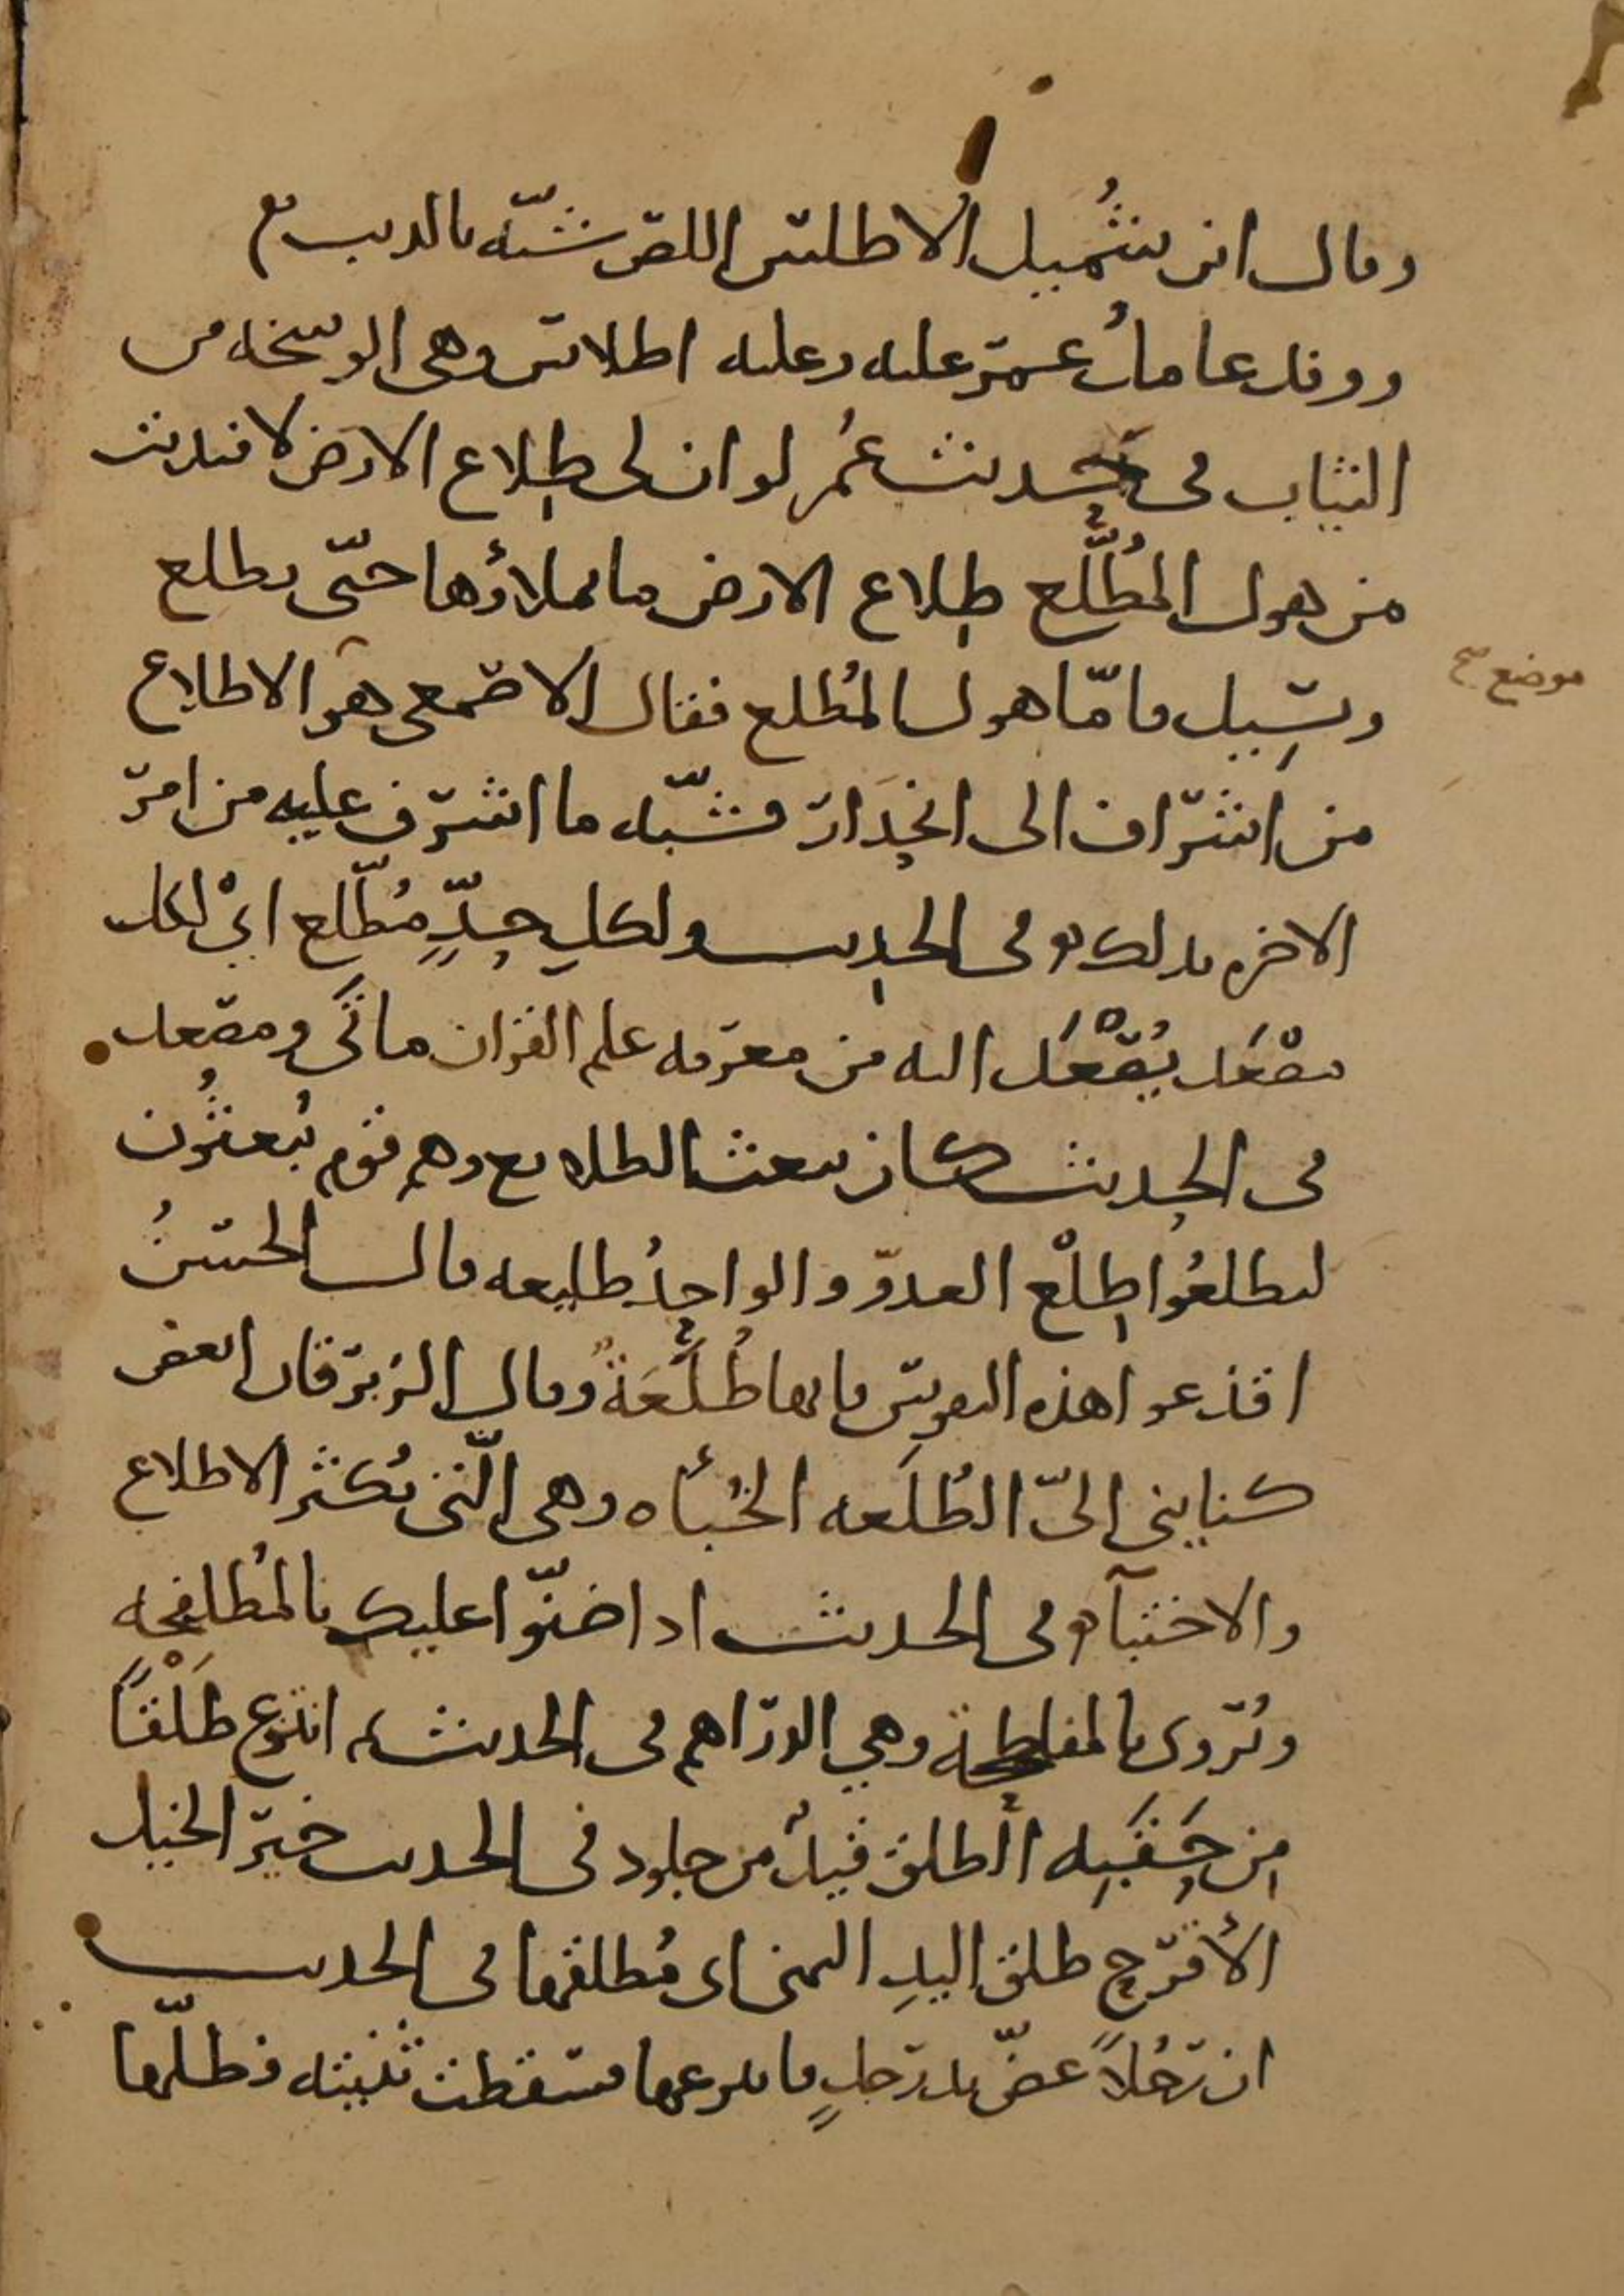 وقال ابن شُميل الاطلس اللص شبّه بالذيب
ووفد عاملُ عمر عليه وعليه اطلاس وهى الوسخه من
الثياب فى حديث عُمر لو ان لى طِلاع الارض لافتديت
من هول المُطَّلَع طِلاع الارض ما يملاؤها حتّى يطلع
ويسِيل فامّا هول المُطلع فقال الاصمعى هو الاطلاع
موضع صح
من اشراف الى انحِدَار فشبّه ما اشرف عليه من امر
الاخره بذلك وفى الحديث ولكلِ حدٍّ مُطّلع اىْ لكل
مصْعَد يُصْعَد اليه من معرفه علم القران مأتَى ومصعد
فى الحديث كان يبعث الطلايع وهم قوم يُبعثُون
ليطلعُوا طِلْع العدوّ والواحِدُ طليعه قال الحسنُ
اقذعوا هذه النفوس فانها طُلَّعَةٌ وقال الزبرقان ابغض
كناينى الىّ الطُلَعه الخُبأه وهى الّتى تُكثر الاطلاع
والاختبآ وفى الحديث اذا ضنّوا عليك بالمُطلفحه
ويُروى بالمفلطحة وهي الدراهم فى الحديث انتزع طَلْقًا
مِن حَقَبِه الطلق قيدٌ من جلود فى الحديث خير الخيل
الأقرح طلق اليدِ اليمنى اى مُطلقها فى الحديث
ان رجُلاً عضّ يد رجلٍ فانتزعها فسقطت ثنيته فطلّها